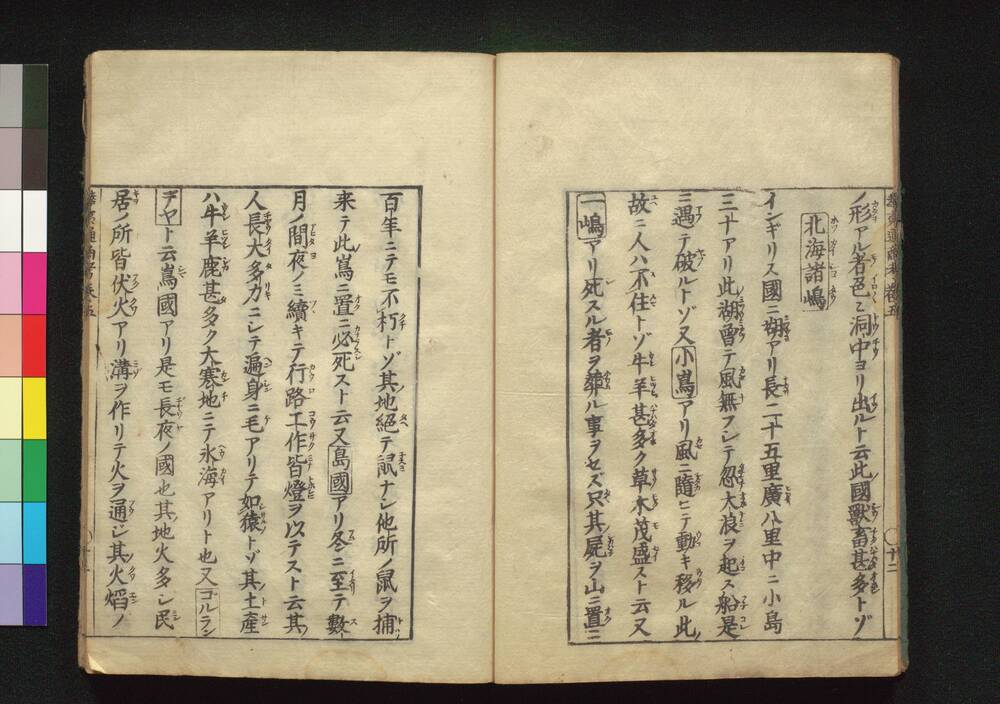 ノ形アル者邑ミ洞中ヨリ出ルト云此國獸畜甚多トゾ
北海諸嶋
インギリス國ニ湖アリ長二十五里廣八里中ニ小島
三十アリ此湖曾テ風無フシテ忽大浪ヲ起ス船是
ニ遇テ破ルトゾ又小嶌アリ風ニ隨ヒテ動キ移ル此
故ニ人ハ不住トゾ牛羊甚多ク草木茂盛スト云又
一嶋アリ死スル者ヲ葬ル事ヲセズ只其屍ヲ山ニ置ニ
百年ニテモ不朽トゾ其地絶テ鼠ナシ他所ノ鼠ヲ捕
来テ此嶌ニ置ニ必死スト云又島國アリ冬ニ至テ數
月ノ間夜ノミ續キテ行路工作皆燈ヲ以テスト云其
人長大多力ニシテ遍身ニ毛アリテ如猿トゾ其土產
ハ牛羊鹿甚多ク大寒地ニテ氷海アリト也又ゴルラン
ヂヤト云嶌國アリ是モ長夜ノ國也其地火多シ民
居ノ所皆伏火アリ溝ヲ作リテ火ヲ通シ其火熖ノ